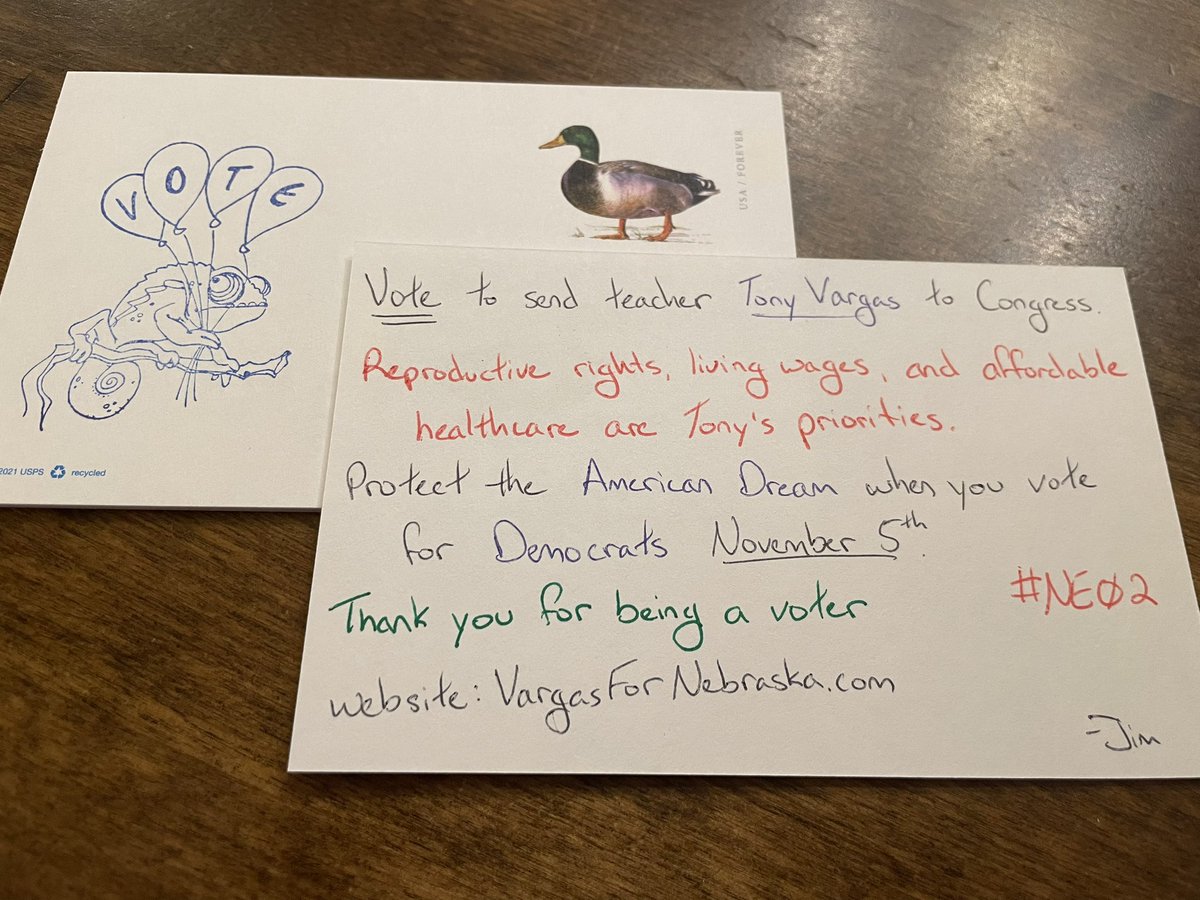 VOTE
USA / FOREVER
2021 USPS recycled
Vote to send teacher Tony Vargas to Congress.
Reproductive rights, living wages, and affordable
healthcare are Tony's priorities.
Protect the American Dream when you vote
for Democrats November 5th.
#NE02
Thank you for being a voter
website: VargasForNebraska.com
-Jim